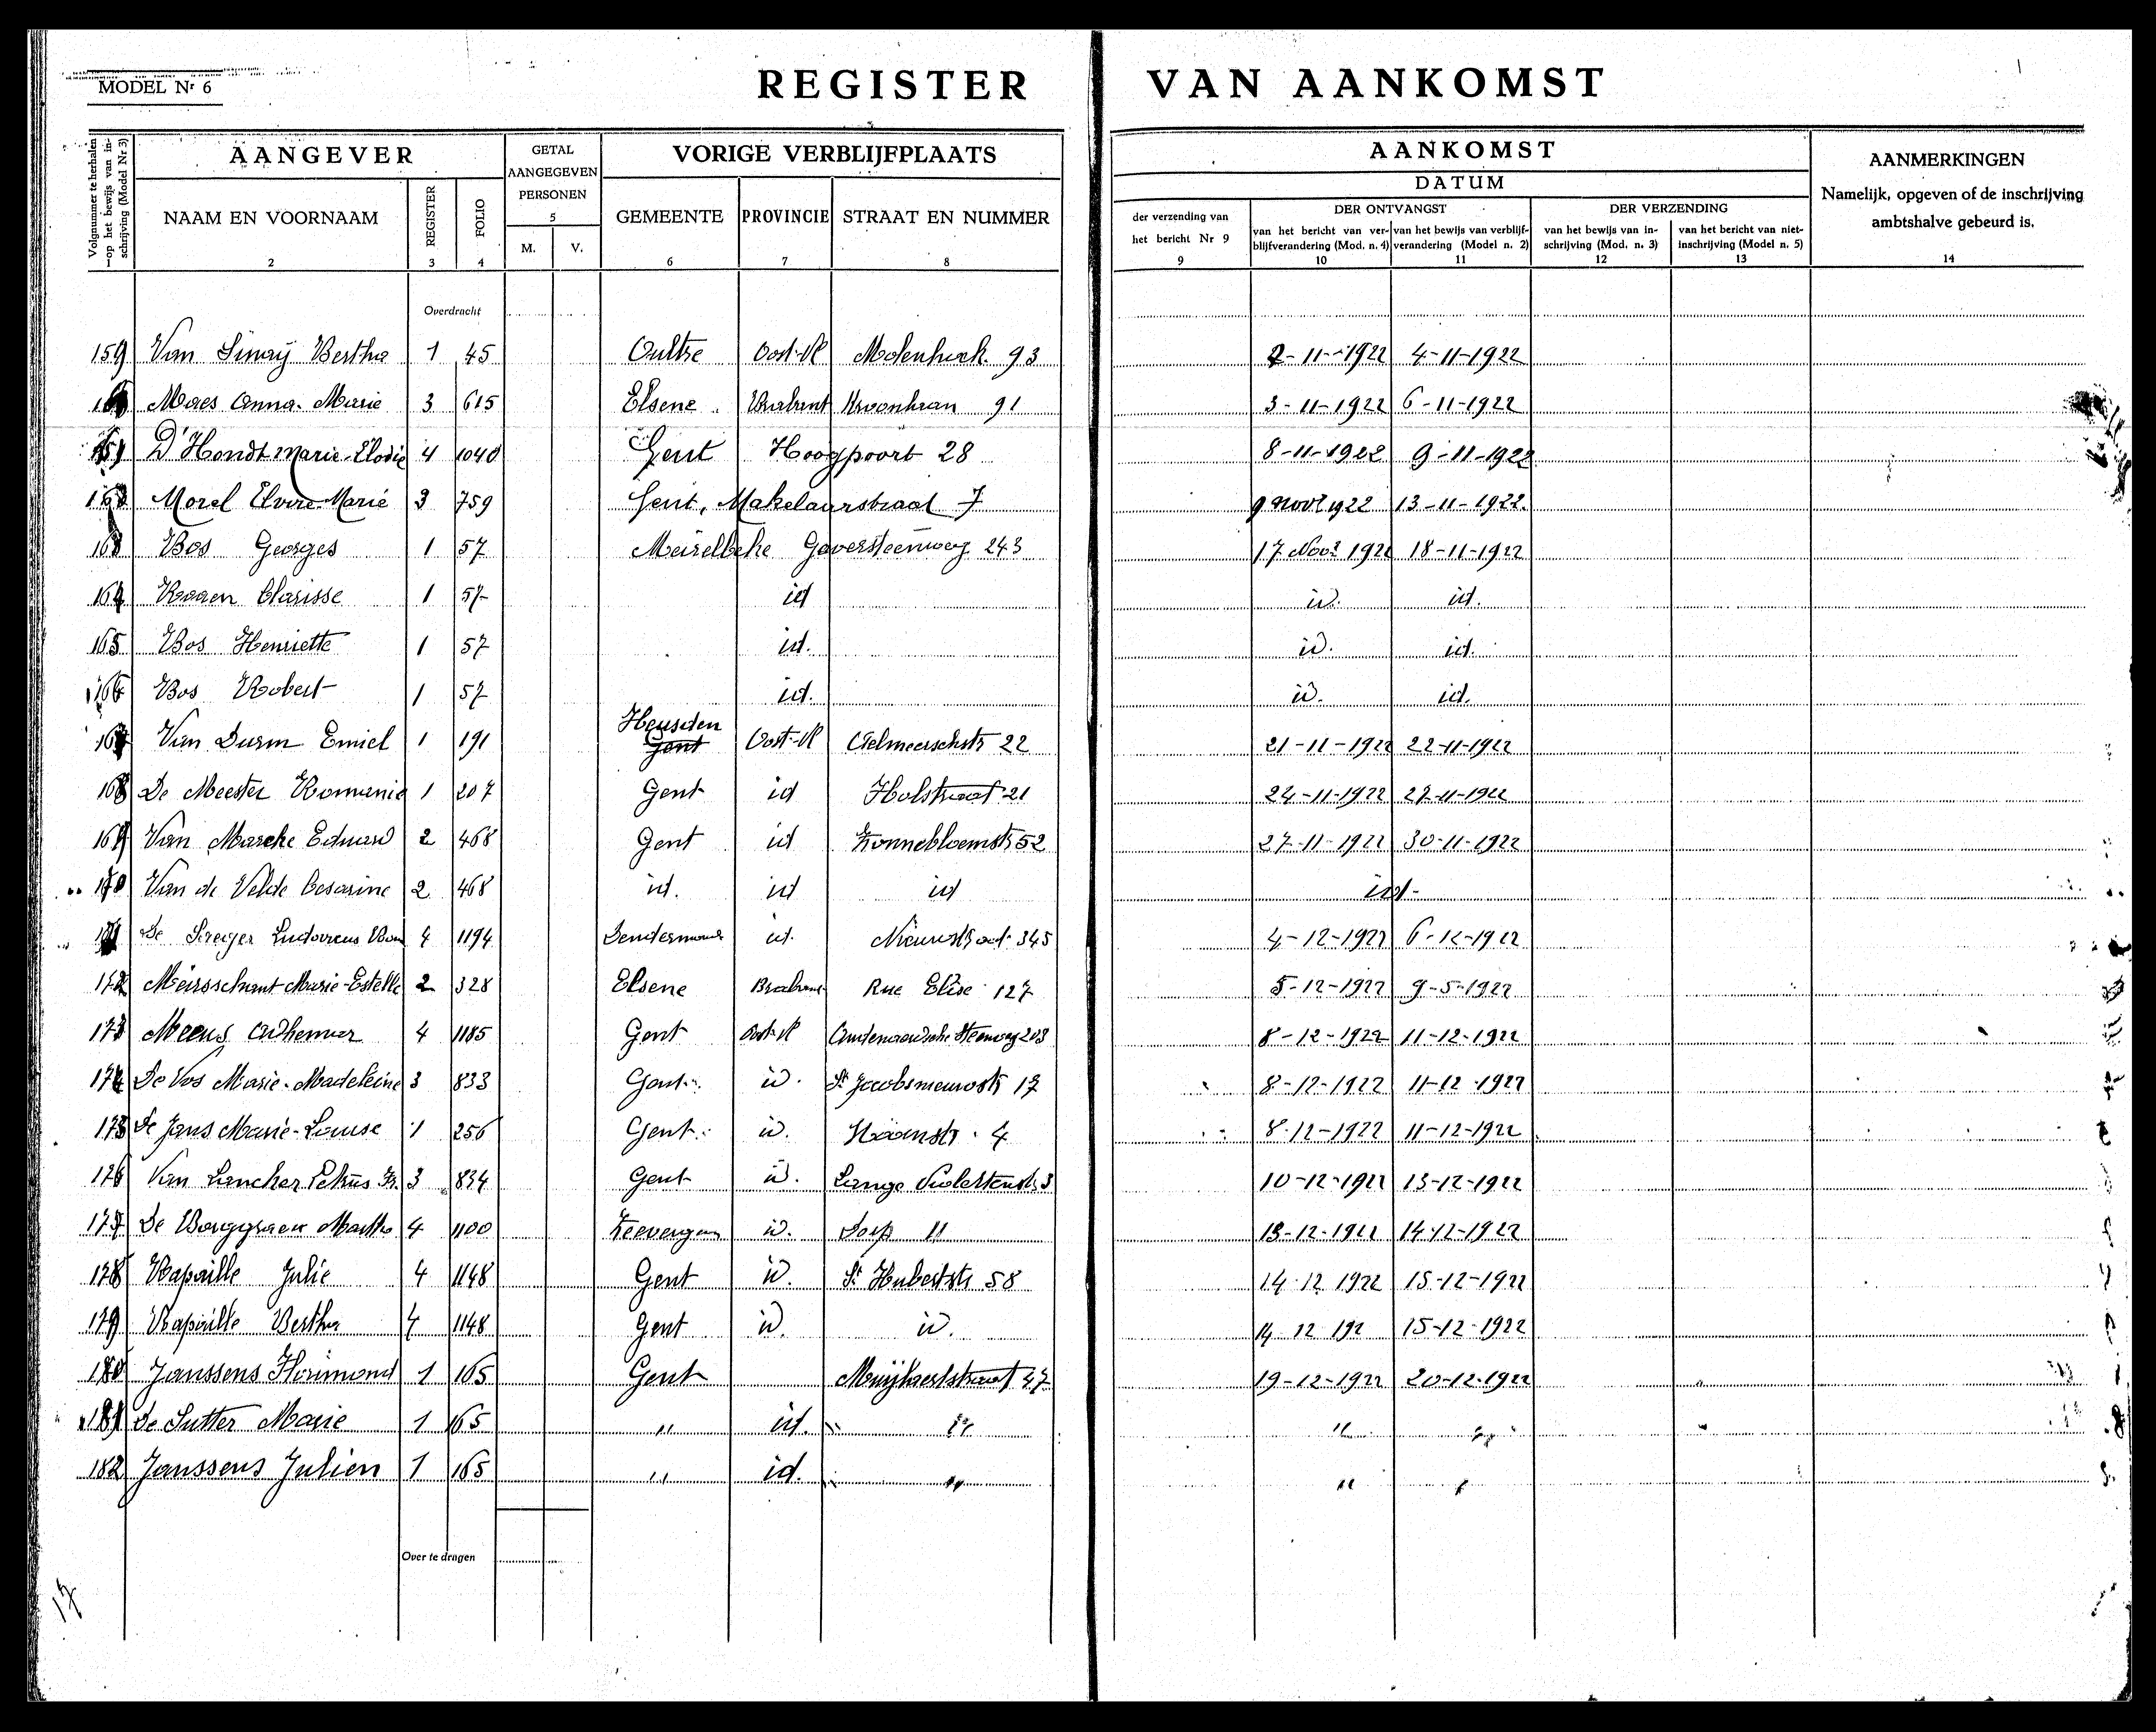 MODEL Nr 6
REGISTER VAN AANKOMST
Volgnummer te herhalen op het bewijs van inschrijving (Model Nr 3)
AANGEVER
GETAL AANGEGEVEN PERSONEN
VORIGE VERBLIJFPLAATS
AANKOMST
AANMERKINGEN
Namelijk, opgeven of de inschrijving ambtshalve gebeurd is.
DATUM
NAAM EN VOORNAAM
REGISTER
FOLIO
M. V.
GEMEENTE PROVINCIE STRAAT EN NUMMER
der verzending van het bericht Nr 9
DER ONTVANGST
van het bericht van verblijfverandering (Mod. n. 4)
van het bewijs van verblijfverandering (Model n. 2)
DER VERZENDING
van het bewijs van inschrijving (Mod. n. 3)
van het bericht van niet-inschrijving (Model n. 5)
1 2 3 4 5 6 7 8 9 10 11 12 13 14
Overdracht
159 Van Sinay Bertha 1 45 Oultre Oost-Vl Molenhoek 93 2-11-1922 4-11-1922
Maes Anna-Marie 3 615 Elsene Brabant 91 3-11-1922 6-11-1922
D'Hondt Marie-Elodie 4 1040 Gent Hoogpoort 28 8-11-1922 9-11-1922
Morel Elvire Marie 3 759 Gent, Makelaarstraat 7 9 Novr 1922 13-11-1922
163 Bos Georges 1 57 Meirelbeke Gaversteenweg 243 17 Novr 1922 18-11-1922
164 Clarisse 1 57 id id. id.
165 Bos Henriette 1 57 id. id. id.
166 Bos Robert 1 57 id. id. id.
167 Van Durm Emiel 1 191 Heusden Gent Oost-Vl 22 21-11-1922 22-11-1922
168 De Meester Romanie 1 207 Gent id Holstraat 21 24-11-1922 27-11-1922
169 Van Marcke Eduard 2 468 Gent id Zonnebloemstr 52 27-11-1922 30-11-1922
170 Van de Velde Cesarine 2 468 id. id id id.
171 De Ludovicus 4 1194 Dendermonde id. 345 4-12-1922 6-12-1922
172 Meirsschaut Marie-Estelle 2 328 Elsene Brabant Rue Elise 127 5-12-1922 9-5-1922
173 Meeus Adhemar 4 1185 Gent Oost-Vl Oudenaardsche Steenweg 203 8-12-1922 11-12-1922
174 De Vos Marie-Madeleine 3 833 Gent id. St Jacobsnieuwstr 17 8-12-1922 11-12-1922
175 De Jans Marie-Louise 1 256 Gent id. 4 8-12-1922 11-12-1922
176 Van Petrus 3 834 Gent id. Lange Violettenstr 3 10-12-1922 13-12-1922
177 De Borggraeve Martha 4 1100 Zeevergem id. Dorp 11 13-12-1922 14-12-1922
178 Rapaille Julie 4 1148 Gent id. St Hubertstr 58 14-12 1922 15-12-1922
179 Rapaille Bertha 4 1148 Gent id. id. 14 12 192 15-12-1922
180 Janssens Florimond 1 165 Gent 19-12-1922 20-12-1922
181 De Sutter Marie 1 165 " id. " " "
182 Janssens Julien 1 165 " id. " " "
Over te dragen
17